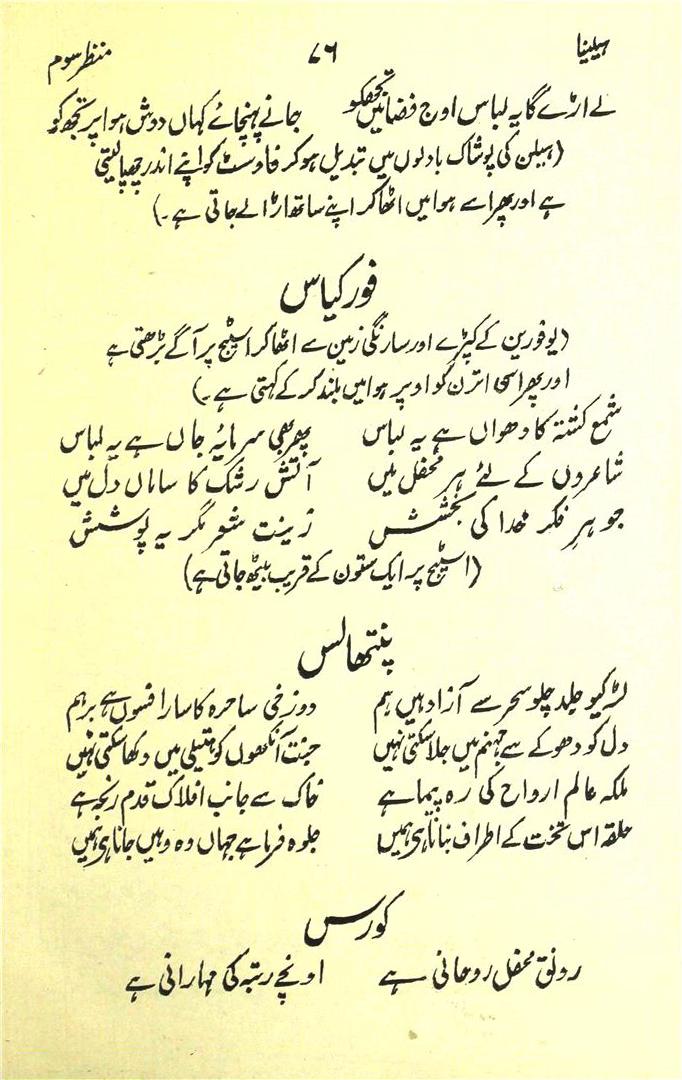 ہیلینا ۷۶ منظر سوم
لے اڑے گا یہ لباس اوج فضا میں تجھکو جانے پہنچائے کہاں دوش ہوا پر تجھ کو
(ہیلن کی پوشاک بادلوں میں تبدیل ہو کر فاوسٹ کو اپنے اندر چھپا لیتی
ہے اور پھر اسے ہوا میں اٹھا کر اپنے ساتھ اڑا لے جاتی ہے۔)
فورکیاس
(یوفورین کے کپڑے اور سارنگی زمین سے اٹھا کر اسٹیج پر آگے بڑھتی ہے
اور پھر اسی اترن کو اوپر ہوا میں بلند کر کے کہتی ہے۔)
شمع کشتہ کا دھواں ہے یہ لباس پھر بھی سرمایۂ جاں ہے یہ لباس
شاعروں کے لئے ہر محفل میں آتش رشک کا ساماں دل میں
جوہرِ فکر خدا کی بخشش زینت شعر مگر یہ پوشش
(اسٹیج پر ایک ستون کے قریب بیٹھ جاتی ہے)
پنتھالس
لڑکیو جلد چلو سحر سے آزاد ہیں ہم دوزخی ساحرہ کا سارا فسوں ہے برہم
دل کو دھوکے سے جہنم میں جلا سکتی نہیں جنت آنکھوں کو ہتیلی میں دکھا سکتی نہیں
ملکہ عالم ارواح کی رہ پیما ہے خاک سے جانب افلاک قدم رنجہ ہے
حلقہ اس تخت کے اطراف بنانا ہی ہمیں جلوہ فرما ہے جہاں وہ وہیں جانا ہی ہمیں
کورس
رونق محفل روحانی ہے اونچے رتبہ کی مہارانی ہے